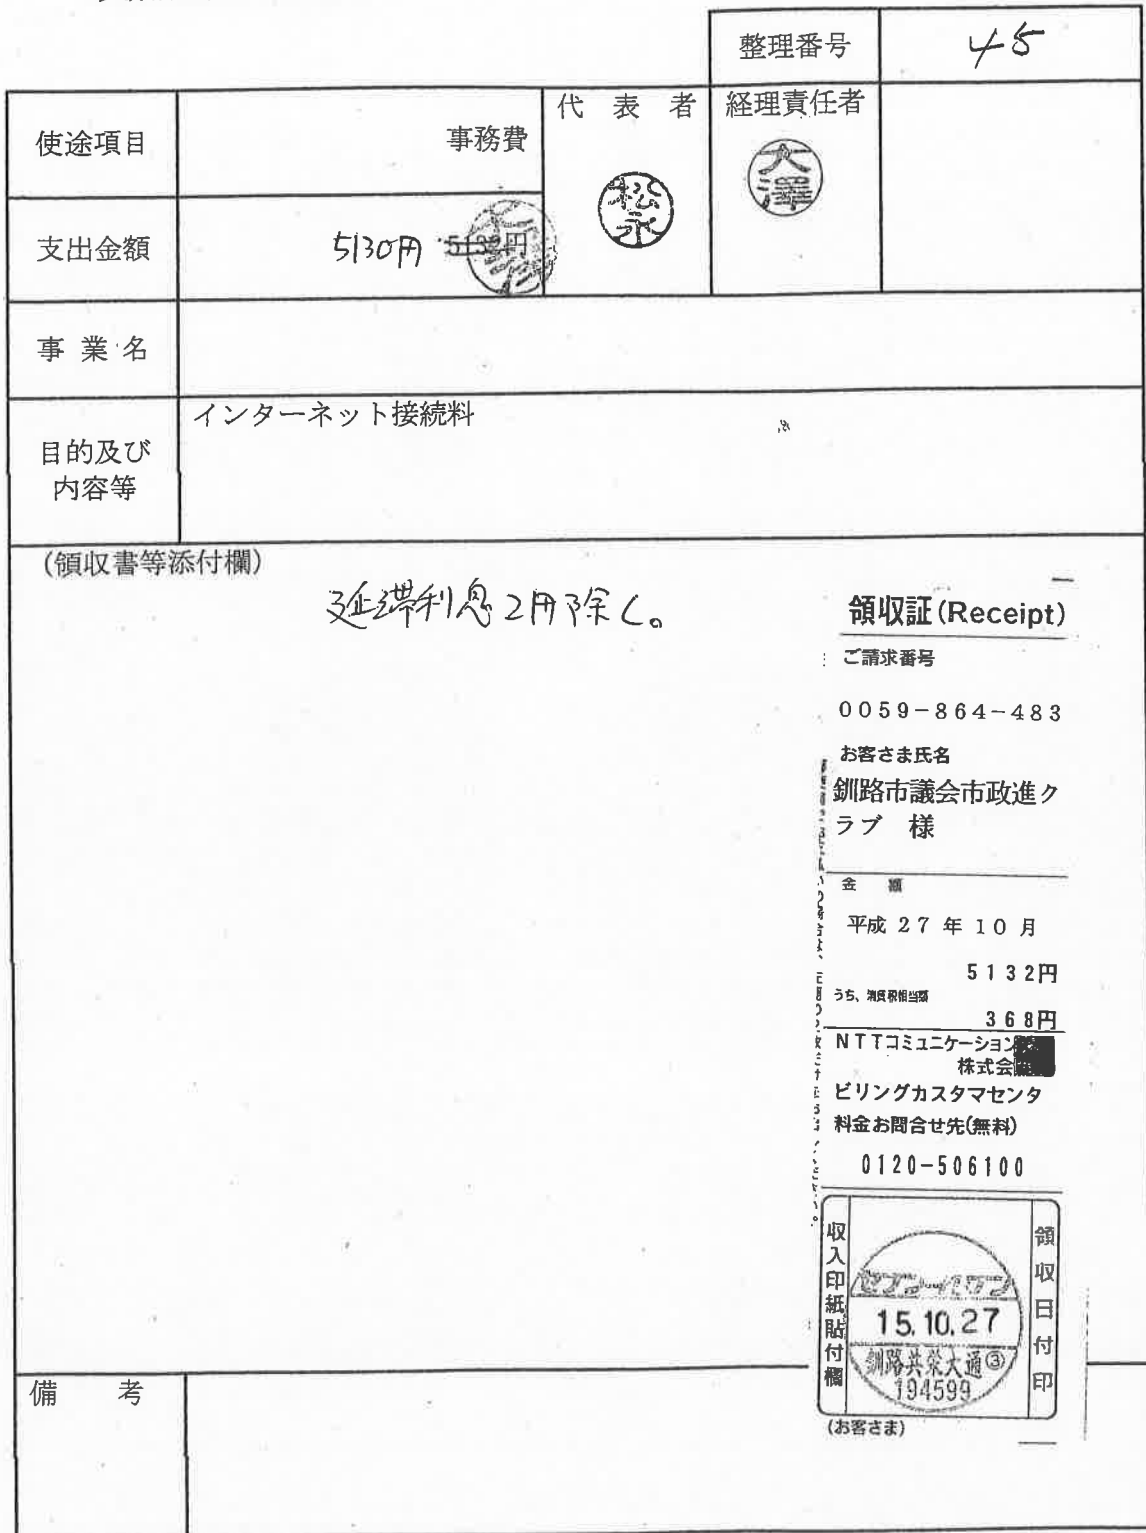 整理番号 45
使途項目 事務費
代表者 経理責任者
松永
大澤
支出金額 5130円 5132円
事業名
目的及び
内容等
インターネット接続料
(領収書等添付欄)
延滞利息2円除く。
領収証(Receipt)
ご請求番号
0059-864-483
お客さま氏名
釧路市議会市政進ク
ラブ 様
金 額
平成 27 年 10 月
5132円
うち、消費税相当額
368円
NTTコミュニケーション
株式会
ビリングカスタマセンタ
料金お問合せ先(無料)
0120-506100
収入印紙貼付欄
セブン-イレブン
15.10.27
釧路共栄大通③
194599
領収日付印
(お客さま)
備 考